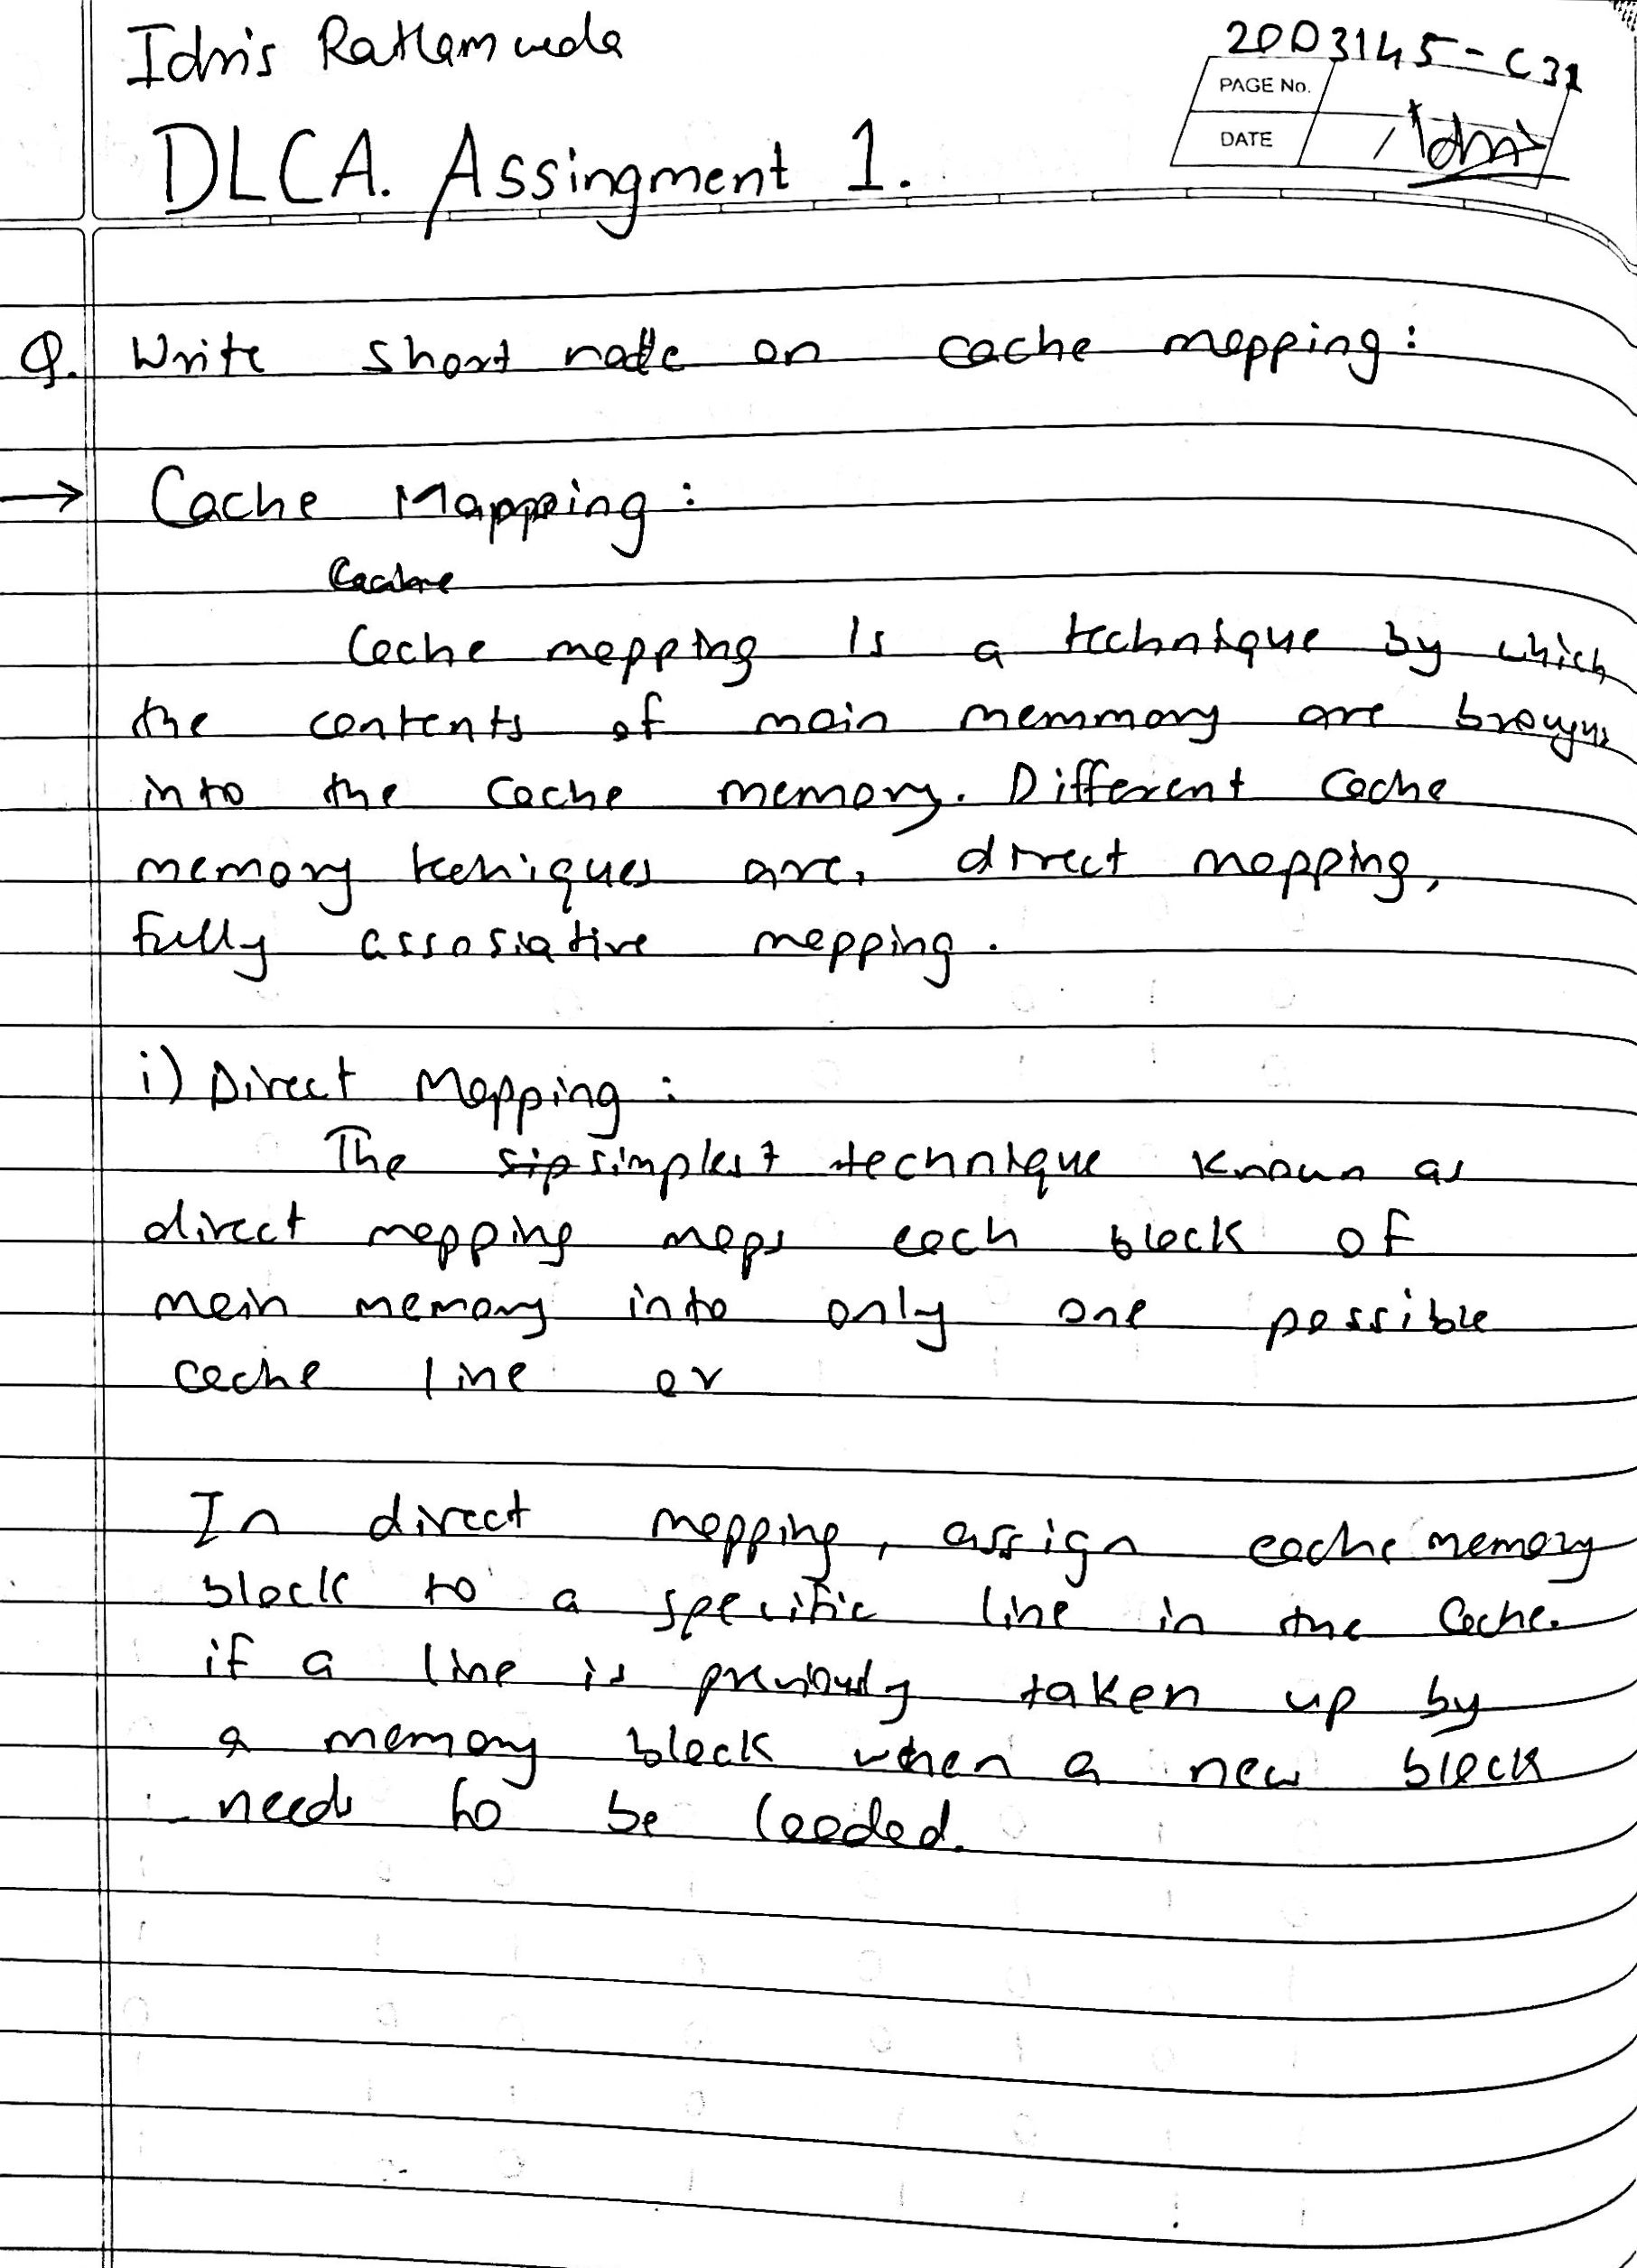 Idris Ratlamwala
2003145-C31
PAGE No.
DATE
Idris
DLCA. Assingment 1.
Q. Write short note on cache mapping:
→ Cache Mappping:
Cache
Cache mapping is a technique by which
the contents of main memmory are
into the cache memory. Different Cache
memory tcehiques are, direct mapping,
fully assosiative mapping.
i) Direct Mapping:
The sip simplest technique known as
direct mapping maps each block of
main memory into only one possible
cache line or
In direct mapping, assign cache memory
block to a specific line in the Cache.
if a line is previously taken up by
a memory block when a new block
needs to be loaded.